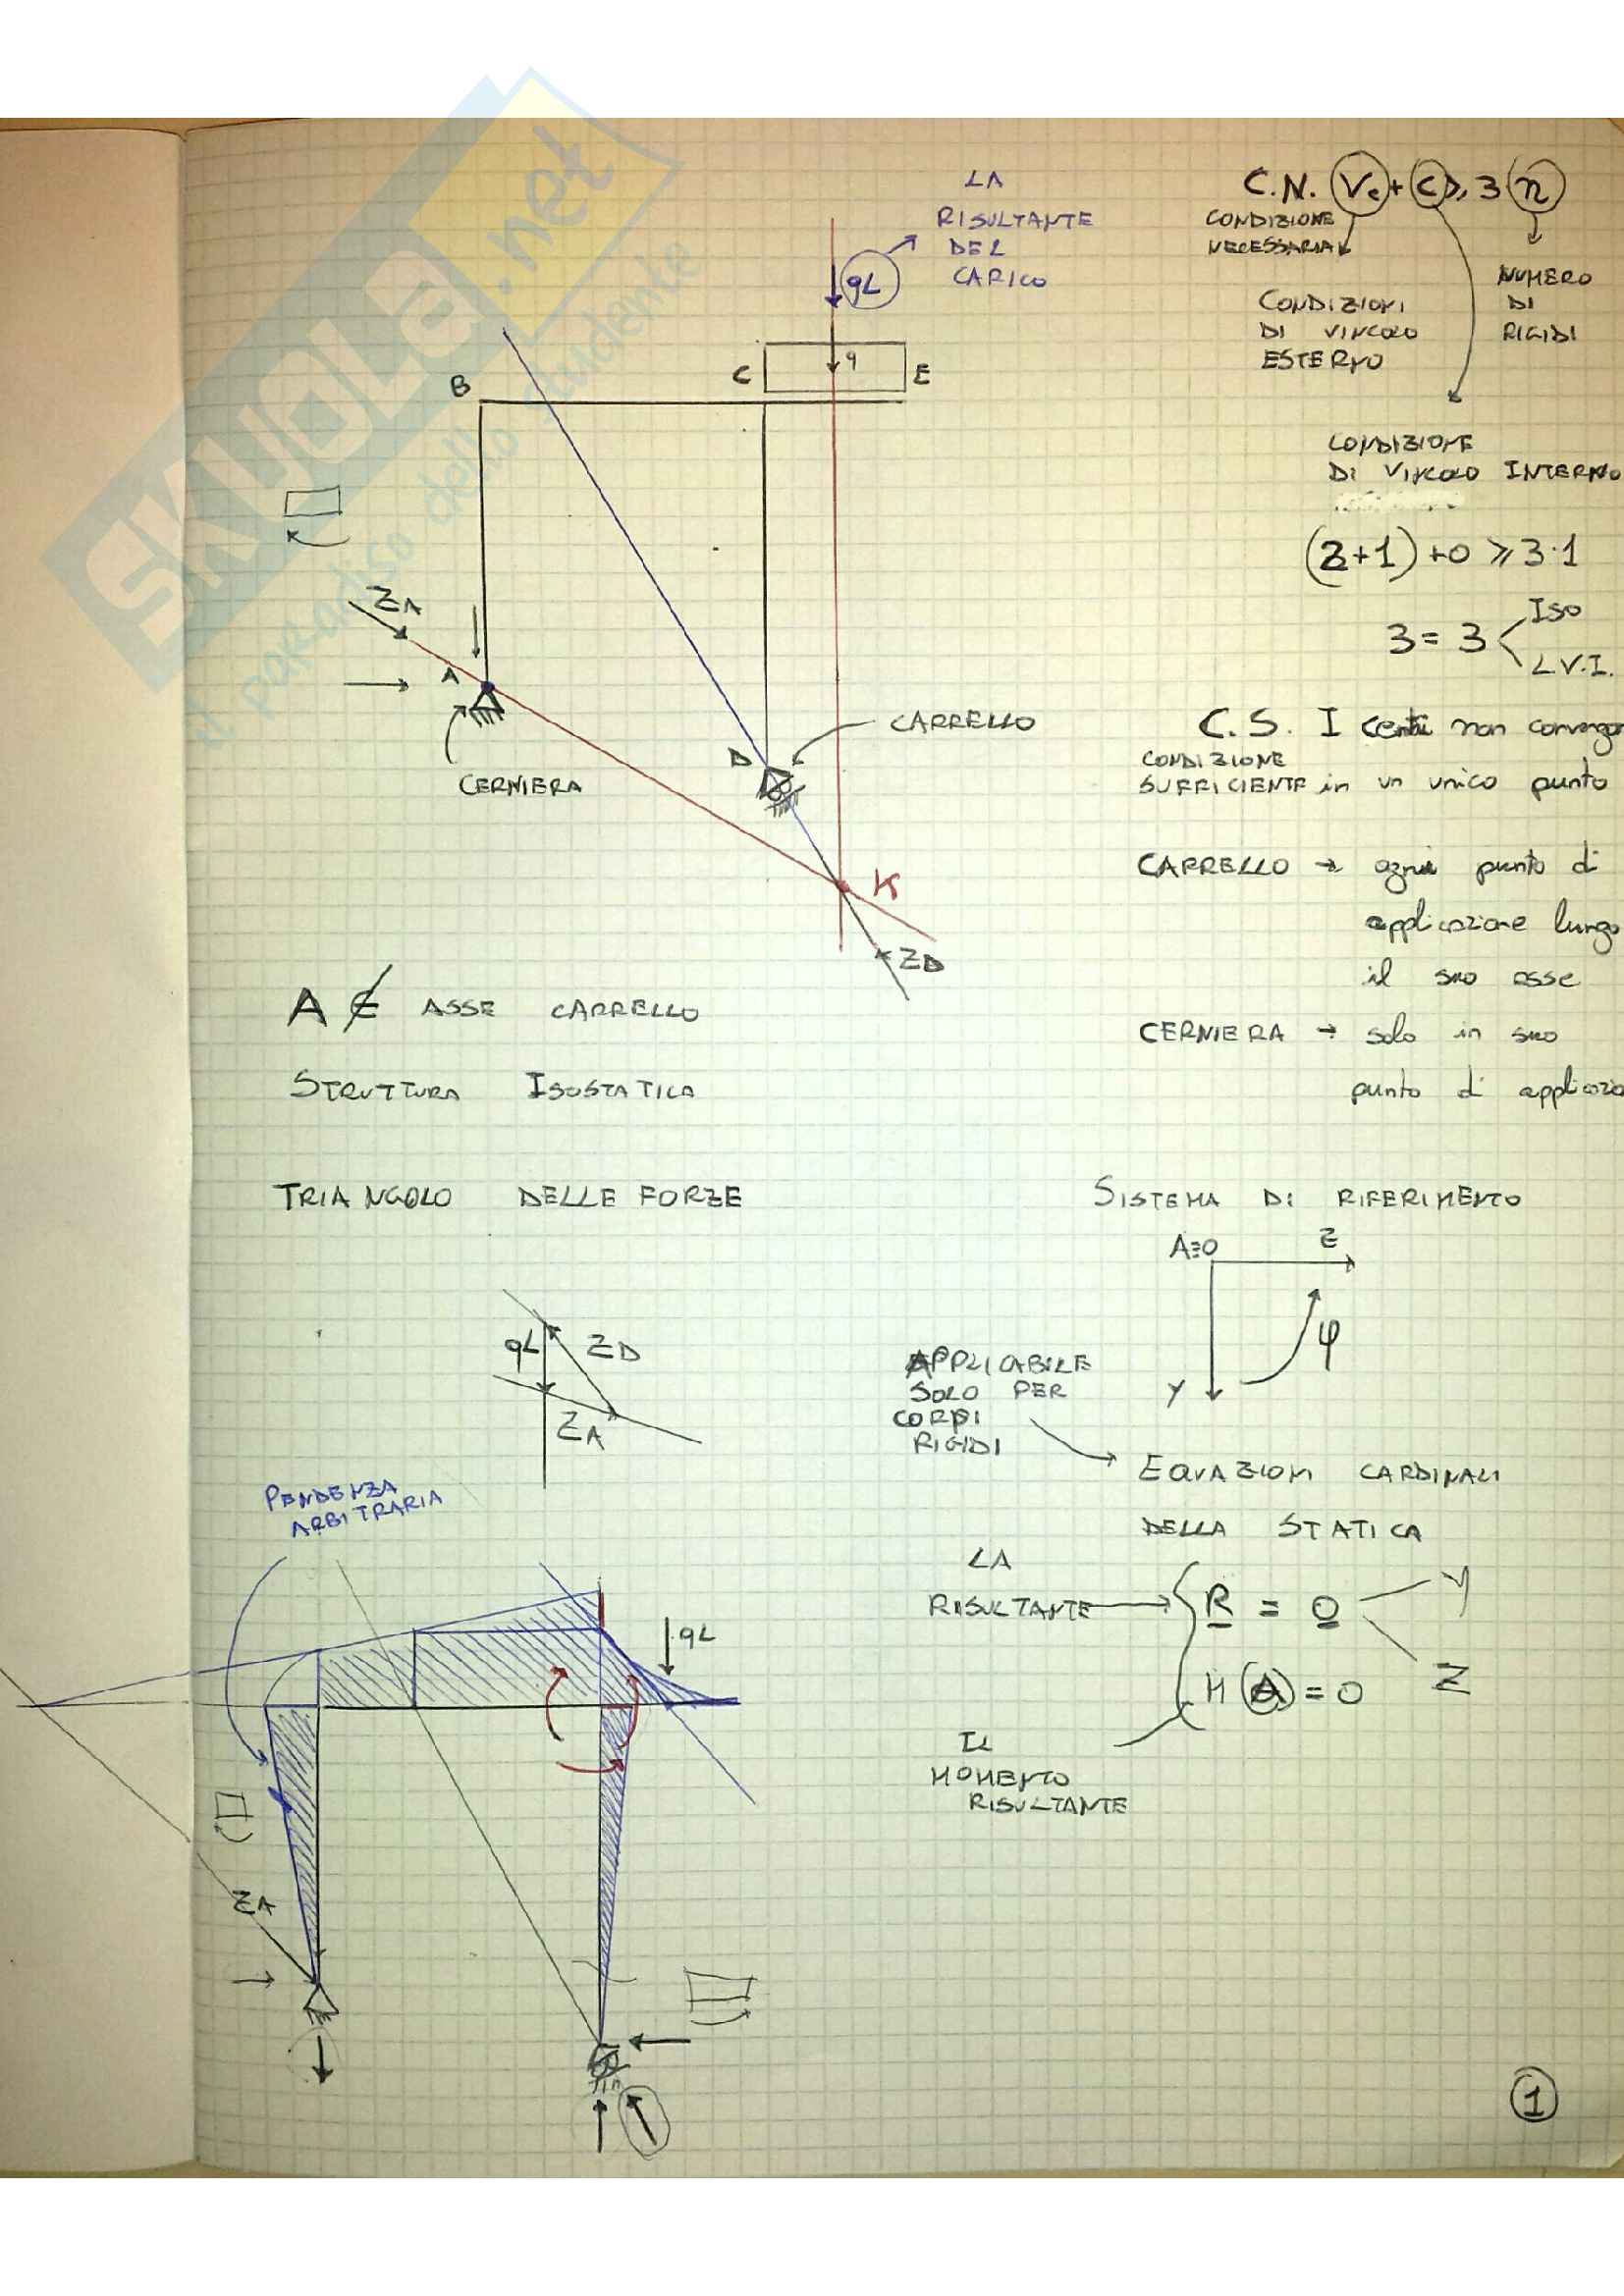 SKUOLA.net
il paradiso dello studente
LA
RISULTANTE
DEL
CARICO
qL
C.N. Ve + C ≥ 3 n
CONDIZIONE
NECESSARIA
CONDIZIONI
DI VINCOLO
ESTERNO
NUMERO
DI
RIGIDI
CONDIZIONE
DI VINCOLO INTERNO
(2+1) + 0 ≥ 3·1
3 = 3
ISO
L.V.I.
B
C
q
E
ZA
A
CERNIERA
D
CARRELLO
K
ZD
C.S. I centri non convergo
CONDIZIONE
SUFFICIENTE in un unico punto
CARRELLO → ogni punto di
applicazione lungo
il suo asse
CERNIERA → solo in suo
punto di applicazio
A ∉ ASSE CARRELLO
STRUTTURA ISOSTATICA
TRIANGOLO DELLE FORZE
qL
ZD
ZA
SISTEMA DI RIFERIMENTO
A≡O
Z
φ
Y
APPLICABILE
SOLO PER
CORPI
RIGIDI
EQUAZIONI CARDINALI
DELLA STATICA
LA
RISULTANTE
R = 0
Y
Z
M(A) = 0
IL
MOMENTO
RISULTANTE
PENDENZA
ARBITRARIA
qL
ZA
1